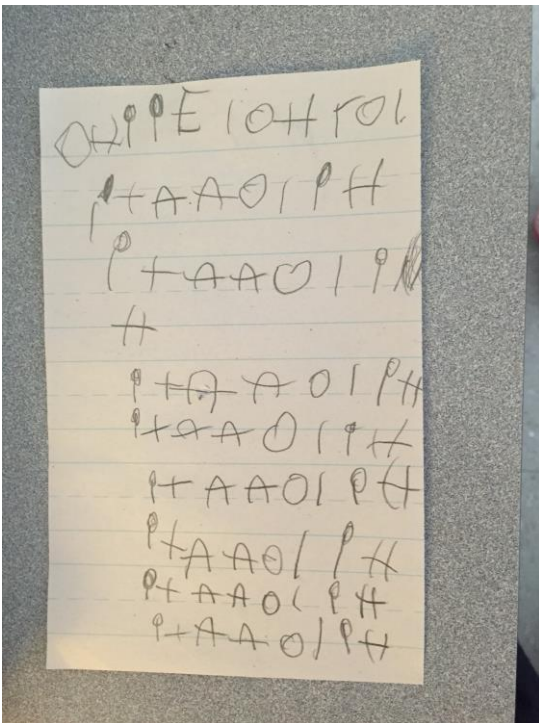 OHPPE IOHTOI
P+AAOIPH
P+AAOIP
H
P+AAOIPH
P+AAOIPH
P+AAOIPH
P+AAOIPH
P+AAOIPH
P+AAOIPH